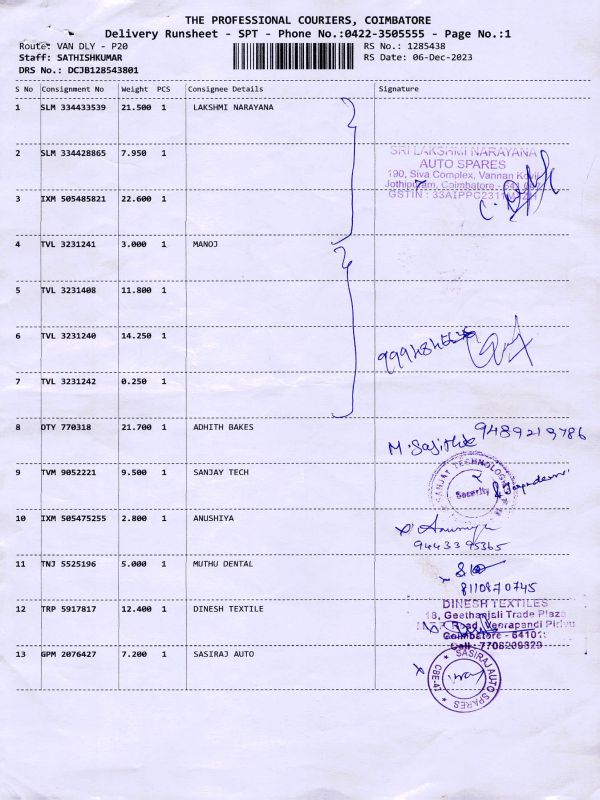 THE PROFESSIONAL COURIERS, COIMBATORE
Delivery Runsheet - SPT - Phone No.:0422-3505555 - Page No.:1
Route: VAN DLY - P20 RS No.: 1285438
Staff: SATHISHKUMAR RS Date: 06-Dec-2023
DRS No.: DCJB128543801
S No Consignment No Weight PCS Consignee Details Signature
1 SLM 334433539 21.500 1 LAKSHMI NARAYANA
2 SLM 334428865 7.950 1
SRI LAKSHMI NARAYANA
AUTO SPARES
190, Siva Complex, Vannan Kovil
Jothipuram, Coimbatore
3 IXM 505485821 22.600 1
GSTIN : 33AIPPC
4 TVL 3231241 3.000 1 MANOJ
5 TVL 3231408 11.800 1
6 TVL 3231240 14.250 1
7 TVL 3231242 0.250 1
8 DTY 770318 21.700 1 ADHITH BAKES
9489219786
9 TVM 9052221 9.500 1 SANJAY TECH
SANJAY TECHNOLOGIES
Security
10 IXM 505475255 2.800 1 ANUSHIYA
9443395365
11 TNJ 5525196 5.000 1 MUTHU DENTAL
8110870745
12 TRP 5917817 12.400 1 DINESH TEXTILE
DINESH TEXTILES
18, Geethanjali Trade Plaza
Road, Veerapandi Pirivu
Coimbatore - 64101
Cell : 7708209329
13 GPM 2076427 7.200 1 SASIRAJ AUTO
SASIRAJ AUTO SPARES
CBE-47